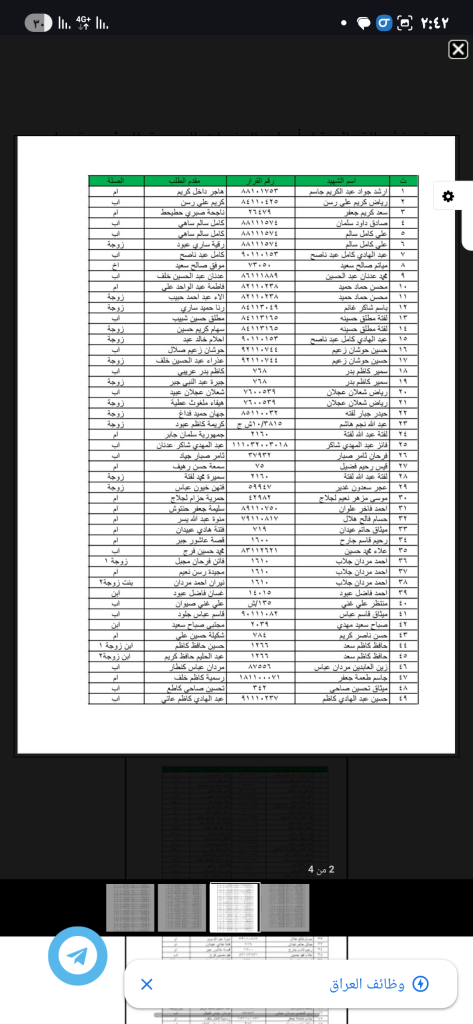 ٢:٤٢ 4G+ ٣٠
ت اسم الشهيد رقم القرار مقدم الطلب الصلة
١ ارشد جواد عبد الكريم جاسم ٨٨١٠١٧٥٣ هاجر داخل كريم ام
٢ رياض كريم علي رسن ٨٤١١٠٤٢٥ كريم علي رسن اب
٣ سعد كريم جعفر ٢٦٤٧٩ ناجحة صبري حطيحط ام
٤ صادق داود سلمان ٨٨١١١٥٧٤ كامل سالم ساهي اب
٥ علي كامل سالم ٨٨١١١٥٧٤ كامل سالم ساهي اب
٦ علي كامل سالم ٨٨١١١٥٧٤ رقية ساري عبود زوجة
٧ عبد الهادي كامل عبد ناصح ٩٠١١٠١٥٣ كامل عبد ناصح اب
٨ ميثم صالح سعيد ٧٣٠٥٠ موفق صالح سعيد اخ
٩ محمد عدنان عبد الحسين ٨٦١١١٨٨٩ عدنان عبد الحسين خلف اب
١٠ محسن حماد حميد ٨٢١١٠٢٣٨ فاطمة عبد الواحد علي ام
١١ محسن حماد حميد ٨٢١١٠٢٣٨ الاء عبد احمد حبيب زوجة
١٢ باسم شاكر غانم ٨٤١١٣٠٤٩ رنا حميد ساري زوجة
١٣ لفتة مطلق حسينه ٨٤١١٣١٦٥ مطلق حسين شبيب اب
١٤ لفتة مطلق حسينه ٨٤١١٣١٦٥ سهام كريم حسين زوجة
١٥ عبد الهادي كامل عبد ناصح ٩٠١١٠١٥٣ احلام خالد عبد زوجة
١٦ حسين حوشان زعيم ٩٢١١٠٧٤٤ حوشان زعيم صلال اب
١٧ حسين حوشان زعيم ٩٢١١٠٧٤٤ عذراء عبد الحسين خلف زوجة
١٨ سمير كاظم بدر ٧٦٨ كاظم بدر عريبي اب
١٩ سمير كاظم بدر ٧٦٨ جبرة عبد النبي جبر زوجة
٢٠ رياض شعلان عجلان ٧٦٠٠٥٣٩ شعلان عجلان عبيد اب
٢١ رياض شعلان عجلان ٧٦٠٠٥٣٩ هيفاء ملغوث عطية زوجة
٢٢ حيدر جبار لفته ٨٥١١٠٠٣٢ جهان حميد فداغ زوجة
٢٣ عبد الله نجم هاشم كريمة كاظم عبود زوجة
٢٤ لفتة عبد الله لفتة ٢١٦٠ جمهورية سلمان جابر ام
٢٥ فائز عبد المهدي شاكر ١١١٠٣٢٠٠٣٠١٨ عبد المهدي شاكر عدنان اب
٢٦ فرحان ثامر صبار ٣٧٩٣٢ ثامر صبار جياد اب
٢٧ قيس رحيم فضيل ٧٥ سمعة حسن رهيف ام
٢٨ لفتة عبد الله لفتة ٢١٦٠ سميرة محمد لفتة زوجة
٢٩ عجر سعدون غدير ٥٩٩٤٧ فتهن خيون عباس زوجة
٣٠ موسى مزهر نعيم لجلاج ٤٢٩٨٢ حمرية حزام لجلاج ام
٣١ احمد فاخر علوان ٨٩١١٠٧٥٠ سليمة جعفر حنتوش ام
٣٢ حسام فالح هلال ٧٩١١٠٨١٧ منوة عبد الله يسر ام
٣٣ ميثاق حاتم عيدان ٧١٩ فتنة هادي عبيدان ام
٣٤ رحيم قاسم جارح ١٦٠٠ قصة عاشور جبر ام
٣٥ علاء محمد حسين ٨٣١١٢٦٢١ محمد حسين فرج اب
٣٦ احمد مردان جلاب ١٦١٠ فاتن فرحان مجبل زوجة ١
٣٧ احمد مردان جلاب ١٦١٠ مجيدة رسن نعيم ام
٣٨ احمد مردان جلاب ١٦١٠ نيران احمد مردان بنت زوجة٢
٣٩ احمد فاضل عبود ١٤٠١٥ غسان فاضل عبود ابن
٤٠ منتظر علي غني ١٣٥/ش علي غني صيوان اب
٤١ ميثاق قاسم عباس ٩٠١١١٠٨٢ قاسم عباس جلود اب
٤٢ صباح سعيد مهدي ٢٠٣٩ مجتبى صباح سعيد ابن
٤٣ حسن ناصر كريم ٧٨٤ شكيلة حسين علي ام
٤٤ حافظ كاظم سعد ١٢٦٦ حسين حافظ كاظم ابن زوجة ١
٤٥ حافظ كاظم سعد ١٢٦٦ عبد الحليم حافظ كريم ابن زوجة٢
٤٦ زين العابدين مردان عباس ٨٧٥٥٦ مردان عباس كنطار اب
٤٧ جاسم طعمة جعفر ١٨١١٠٠٠٧١ رسمية كاظم خلف ام
٤٨ ميثاق تحسين صاحي ٣٤٢ تحسين صاحي كاطع اب
٤٩ حسين عبد الهادي كاظم ٩١١١٠٢٣٧ عبد الهادي كاظم عاتي اب
2 من 4
وظائف العراق